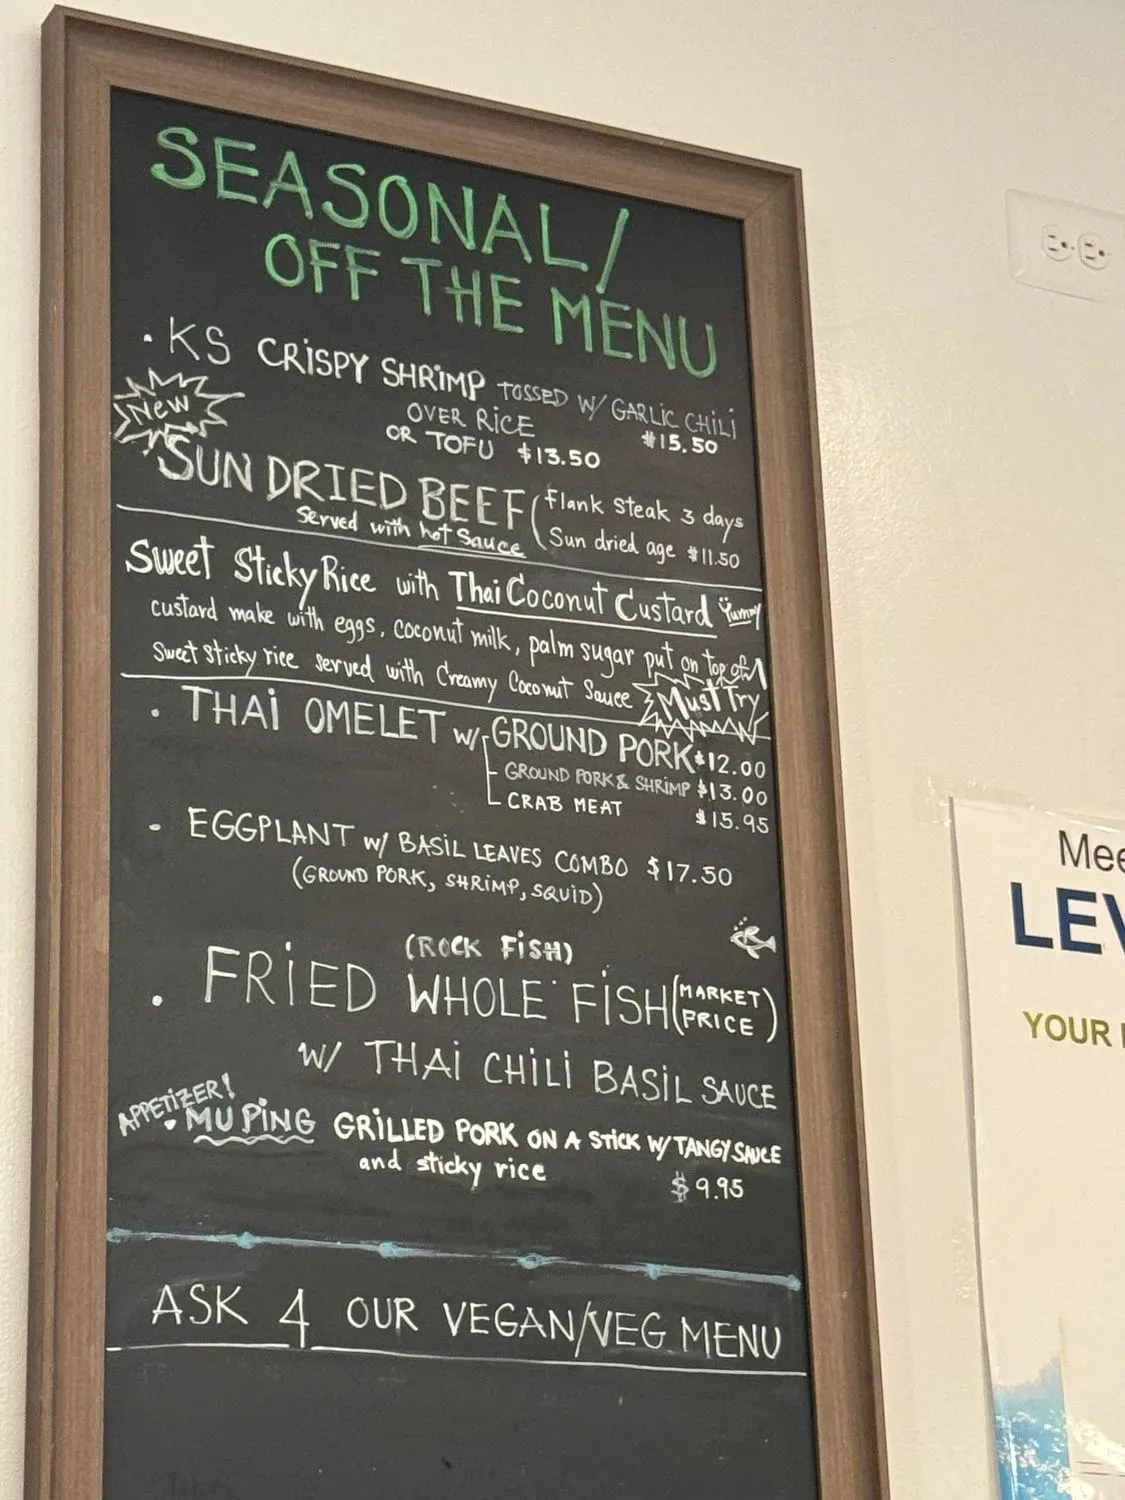 SEASONAL/
OFF THE MENU
· KS CRISPY SHRIMP TOSSED W/ GARLIC CHILI
OVER RICE $15.50
OR TOFU $13.50
New
SUN DRIED BEEF (Flank Steak 3 days
Served with hot Sauce Sun dried age $11.50
Sweet Sticky Rice with Thai Coconut Custard Yummy
custard make with eggs, coconut milk, palm sugar put on top of
Sweet Sticky rice served with Creamy Coconut Sauce Must Try
· THAI OMELET w/ GROUND PORK $12.00
GROUND PORK & SHRIMP $13.00
CRAB MEAT $15.95
- EGGPLANT w/ BASIL LEAVES COMBO $17.50
(GROUND PORK, SHRIMP, SQUID)
(ROCK FISH)
· FRIED WHOLE FISH (MARKET PRICE)
W/ THAI CHILI BASIL SAUCE
APPETIZER!
· MU PING GRILLED PORK ON A STICK W/ TANGY SAUCE
and sticky rice $9.95
ASK 4 OUR VEGAN/VEG MENU
Mee
LEV
YOUR